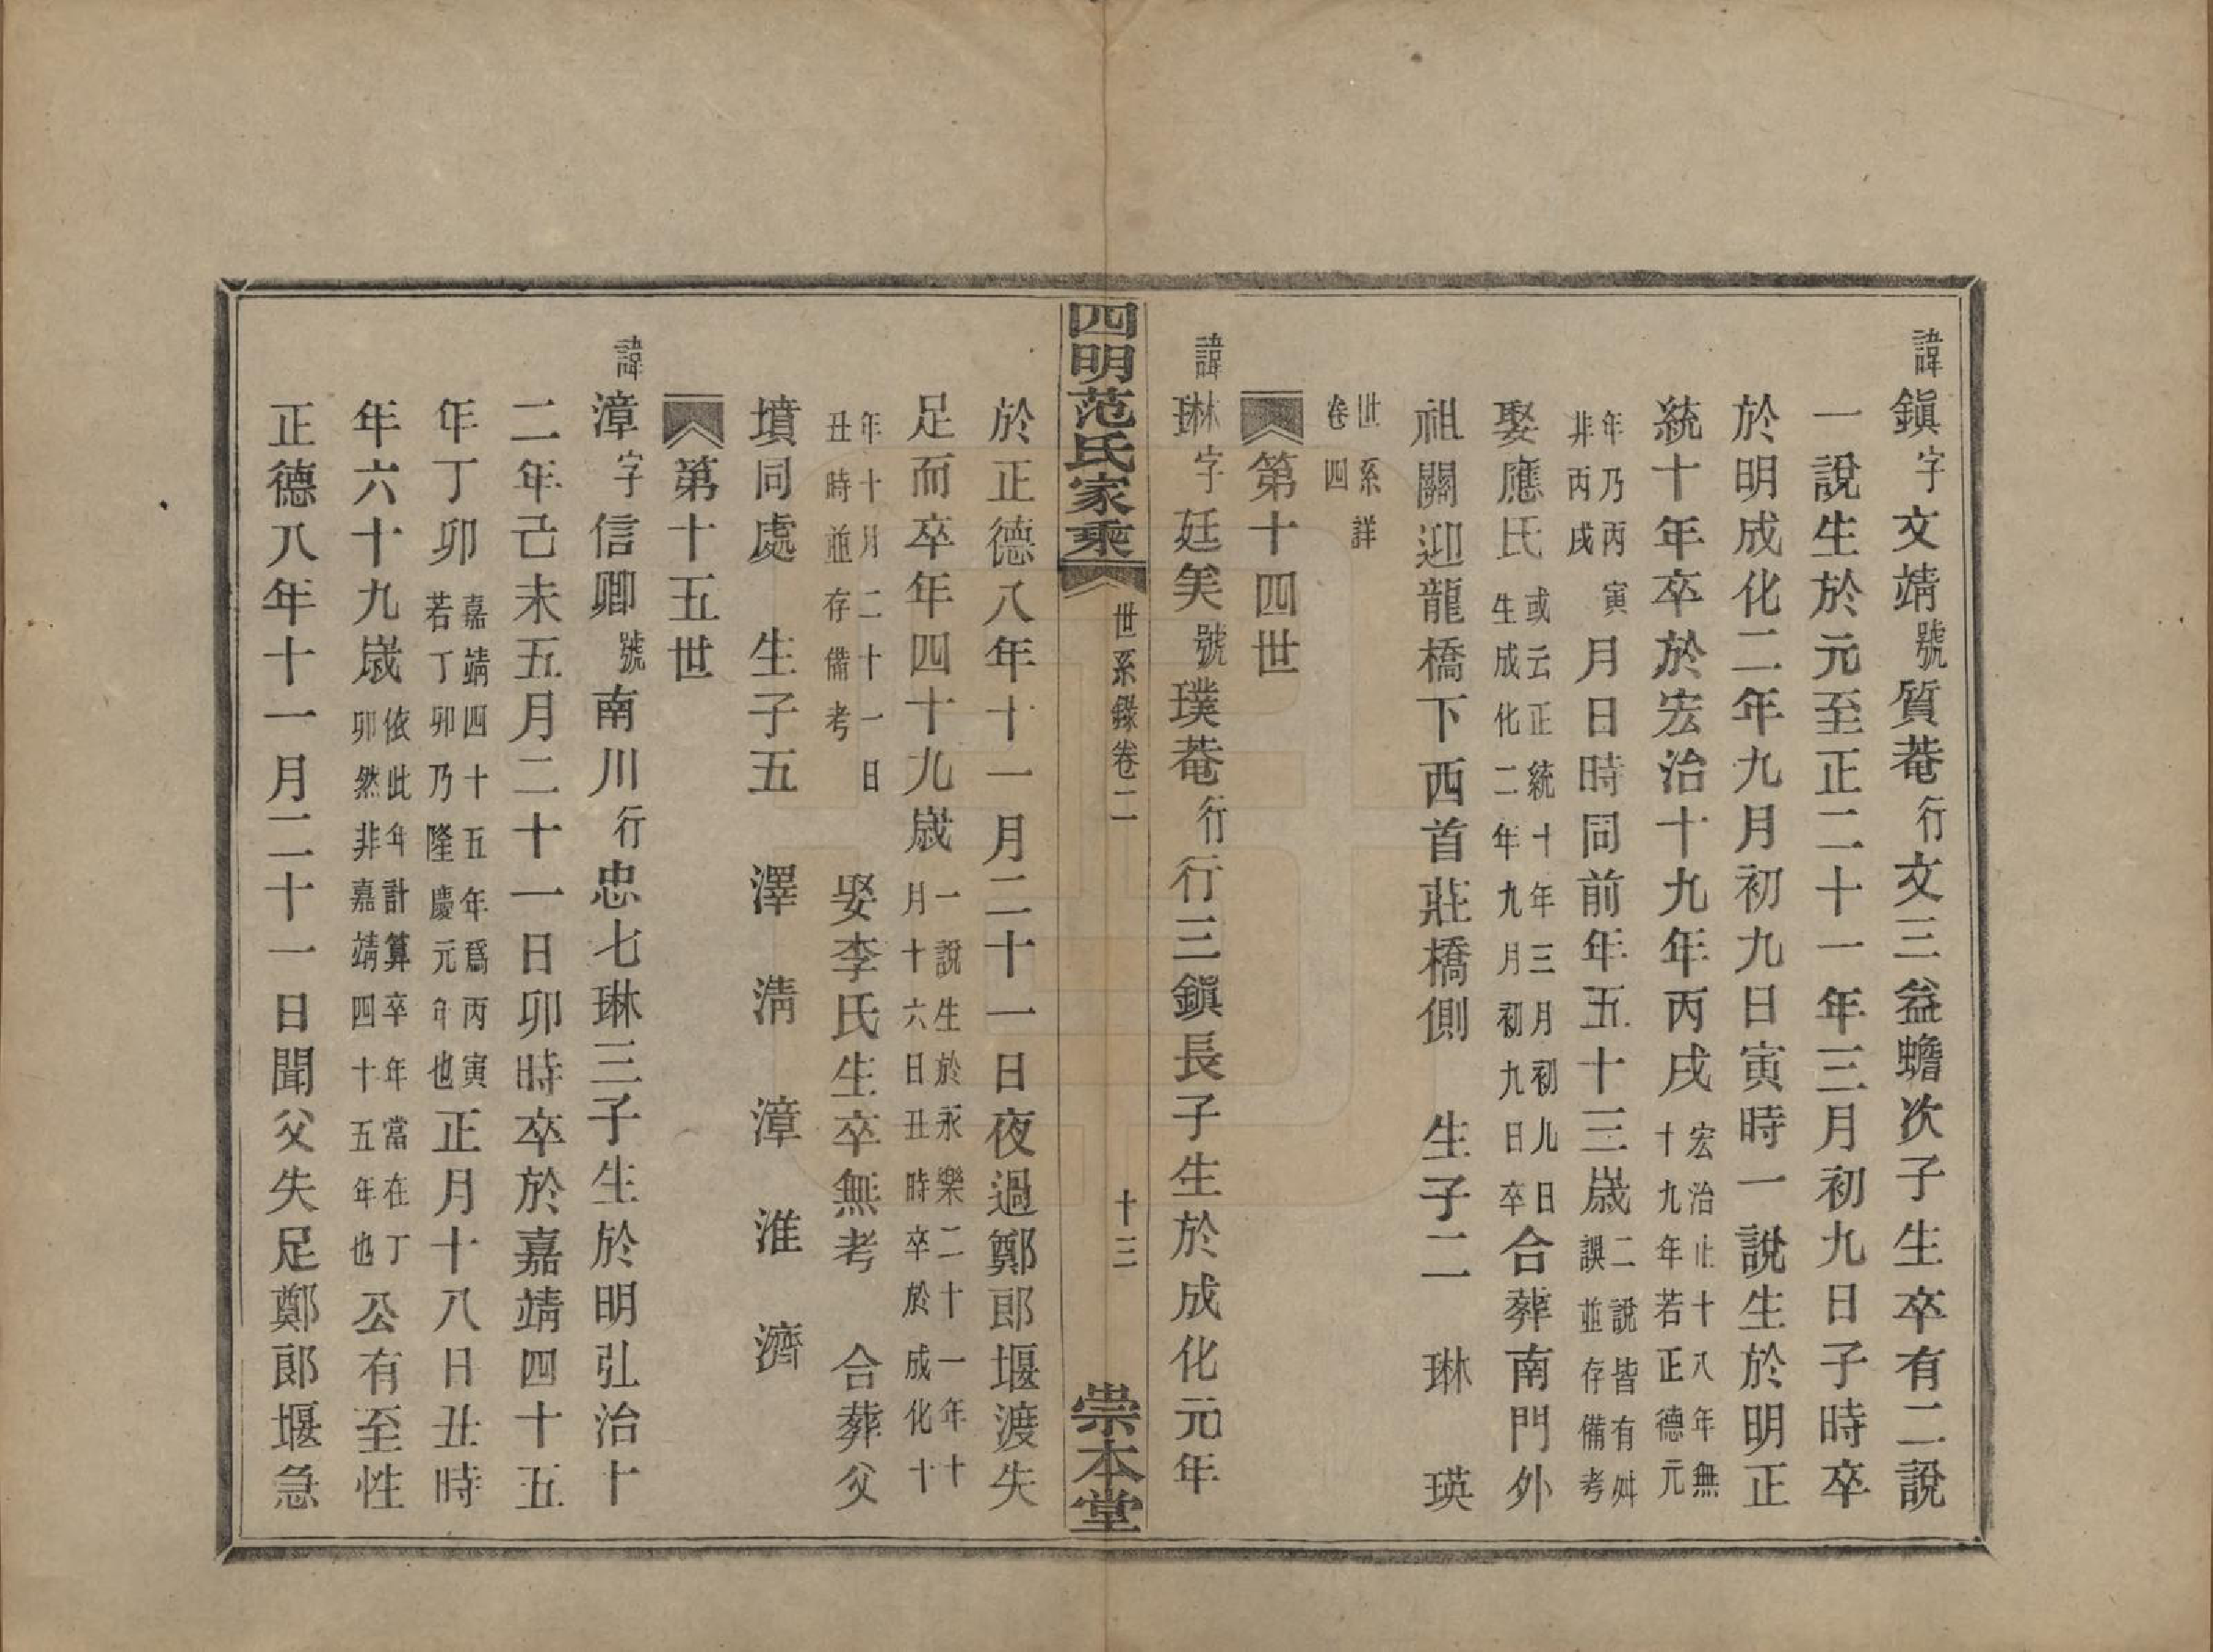 諱鎭字文靖號質菴行文三益蟾次子生卒有二說
一說生於元至正二十一年三月初九日子時卒
於明成化二年九月初九日寅時一說生於明正
統十年卒於宏治十九年丙戌宏治止十八年無十九年若正德元
年乃丙寅非丙戌月日時同前年五十三歲二說皆有舛誤並存備考
娶應氏或云正統十年三月初九日生成化二年九月初九日卒合葬南門外
祖關迎龍橋下西首莊橋側 生子二 琳 瑛
世系詳卷四
第十四世
諱琳字廷美號璞菴行行三鎭長子生於成化元年
四明范氏家乘 世系錄卷二 十三 崇本堂
於正德八年十一月二十一日夜過鄭郎堰渡失
足而卒年四十九歲一說生於永樂二十一年十月十六日丑時卒於成化十
年十月二十一日丑時並存備考 娶李氏生卒無考 合葬父
墳同處 生子五 澤 淸 漳 淮 濟
第十五世
諱漳字信卿號南川行忠七琳三子生於明弘治十
二年己未五月二十一日卯時卒於嘉靖四十五
年丁卯嘉靖四十五年爲丙寅若丁卯乃隆慶元年也正月十八日丑時
年六十九歲依此年計算卒年當在丁卯然非嘉靖四十五年也公有至性
正德八年十一月二十一日聞父失足鄭郎堰急